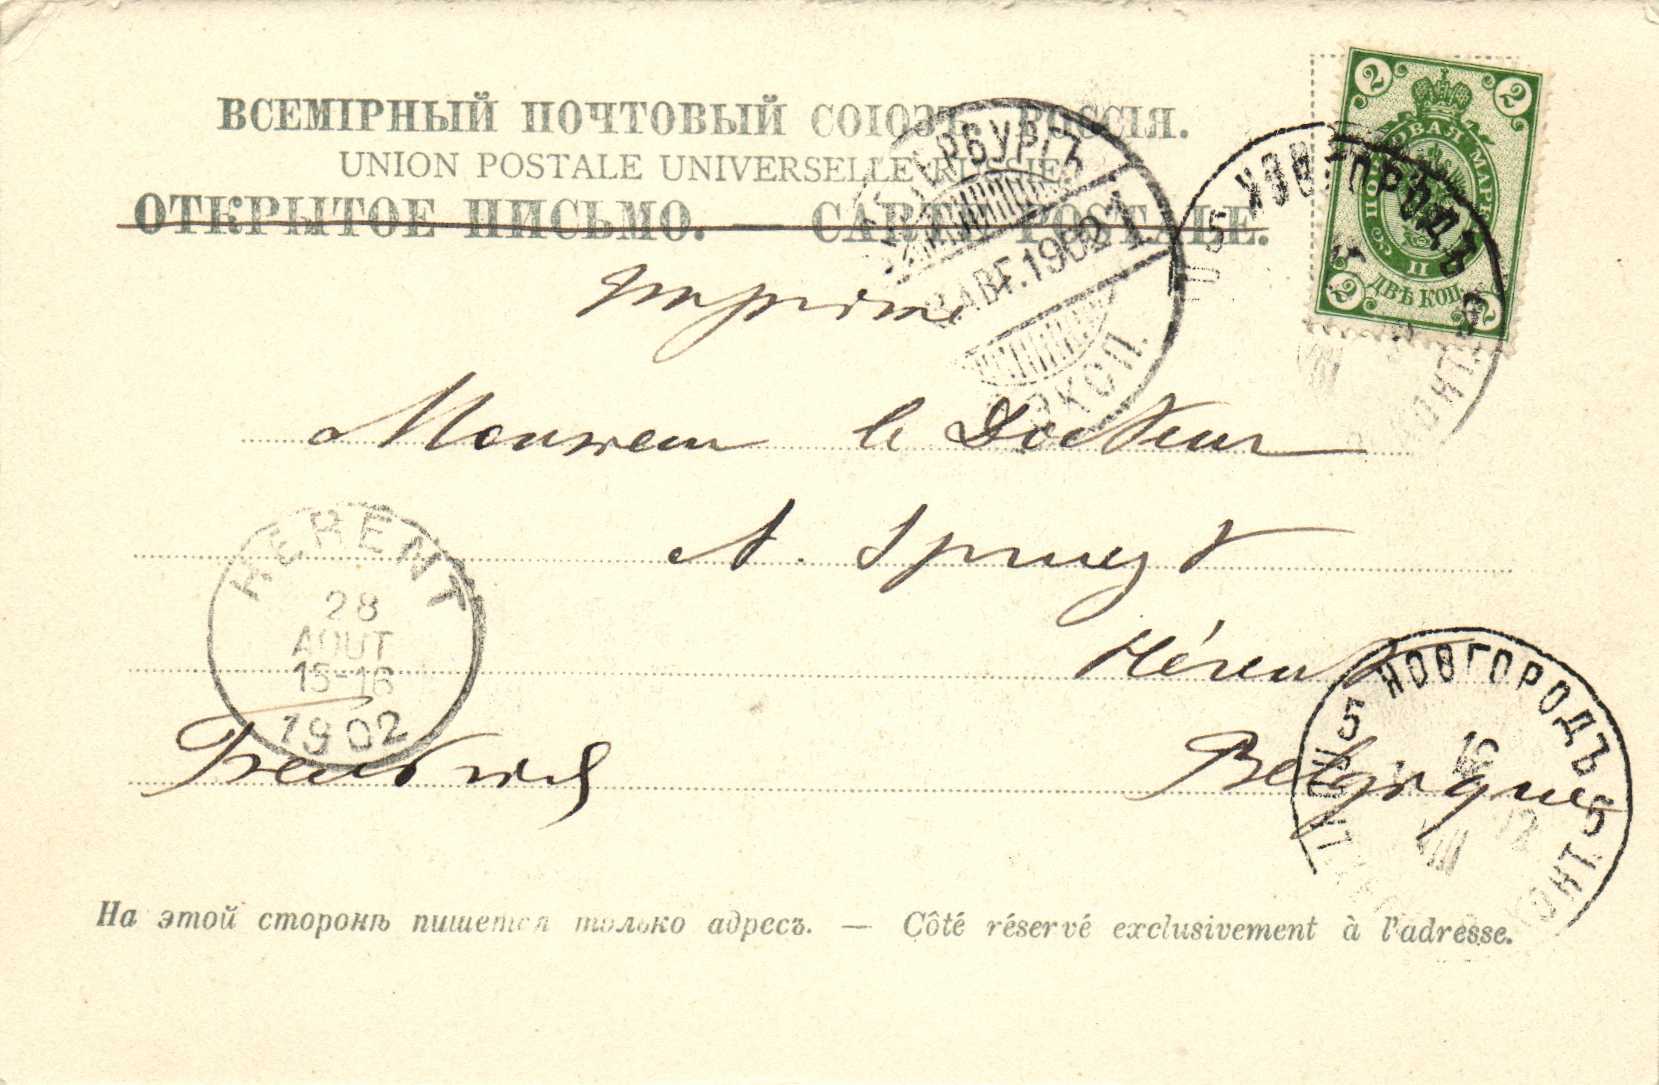 ВСЕМІРНЫЙ ПОЧТОВЫЙ СОЮЗЪ. РОССІЯ.
UNION POSTALE UNIVERSELLE RUSSIE
ОТКРЫТОЕ ПИСЬМО. — CARTE POSTALE.
2 2
ПОЧТОВАЯ МАРКА
ДВѢ КОП.
2 2
НОВГОРОДЪ
5
ПЕТЕРБУРГЪ
АВГ.1902
1
Imprimé
Monsieur le Docteur
A. Spruyt
Hérent
Belgique
HERENT
28
AOUT
15-16
1902
5 НОВГОРОДЪ 5
16
VIII
На этой сторонѣ пишется только адресъ. — Côté réservé exclusivement à l'adresse.